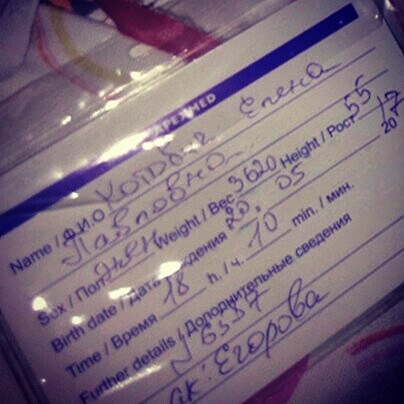 Name / Ф.И.О Елена
Павловна
Sex / Пол жен Weight / Вес 3620 Height / Рост 55
Birth date / Дата рождения 20. 05 2017
Time / Время 18 h. / ч. 10 min. / мин.
Further details / Дополнительные сведения
N 6337
ак: Егорова